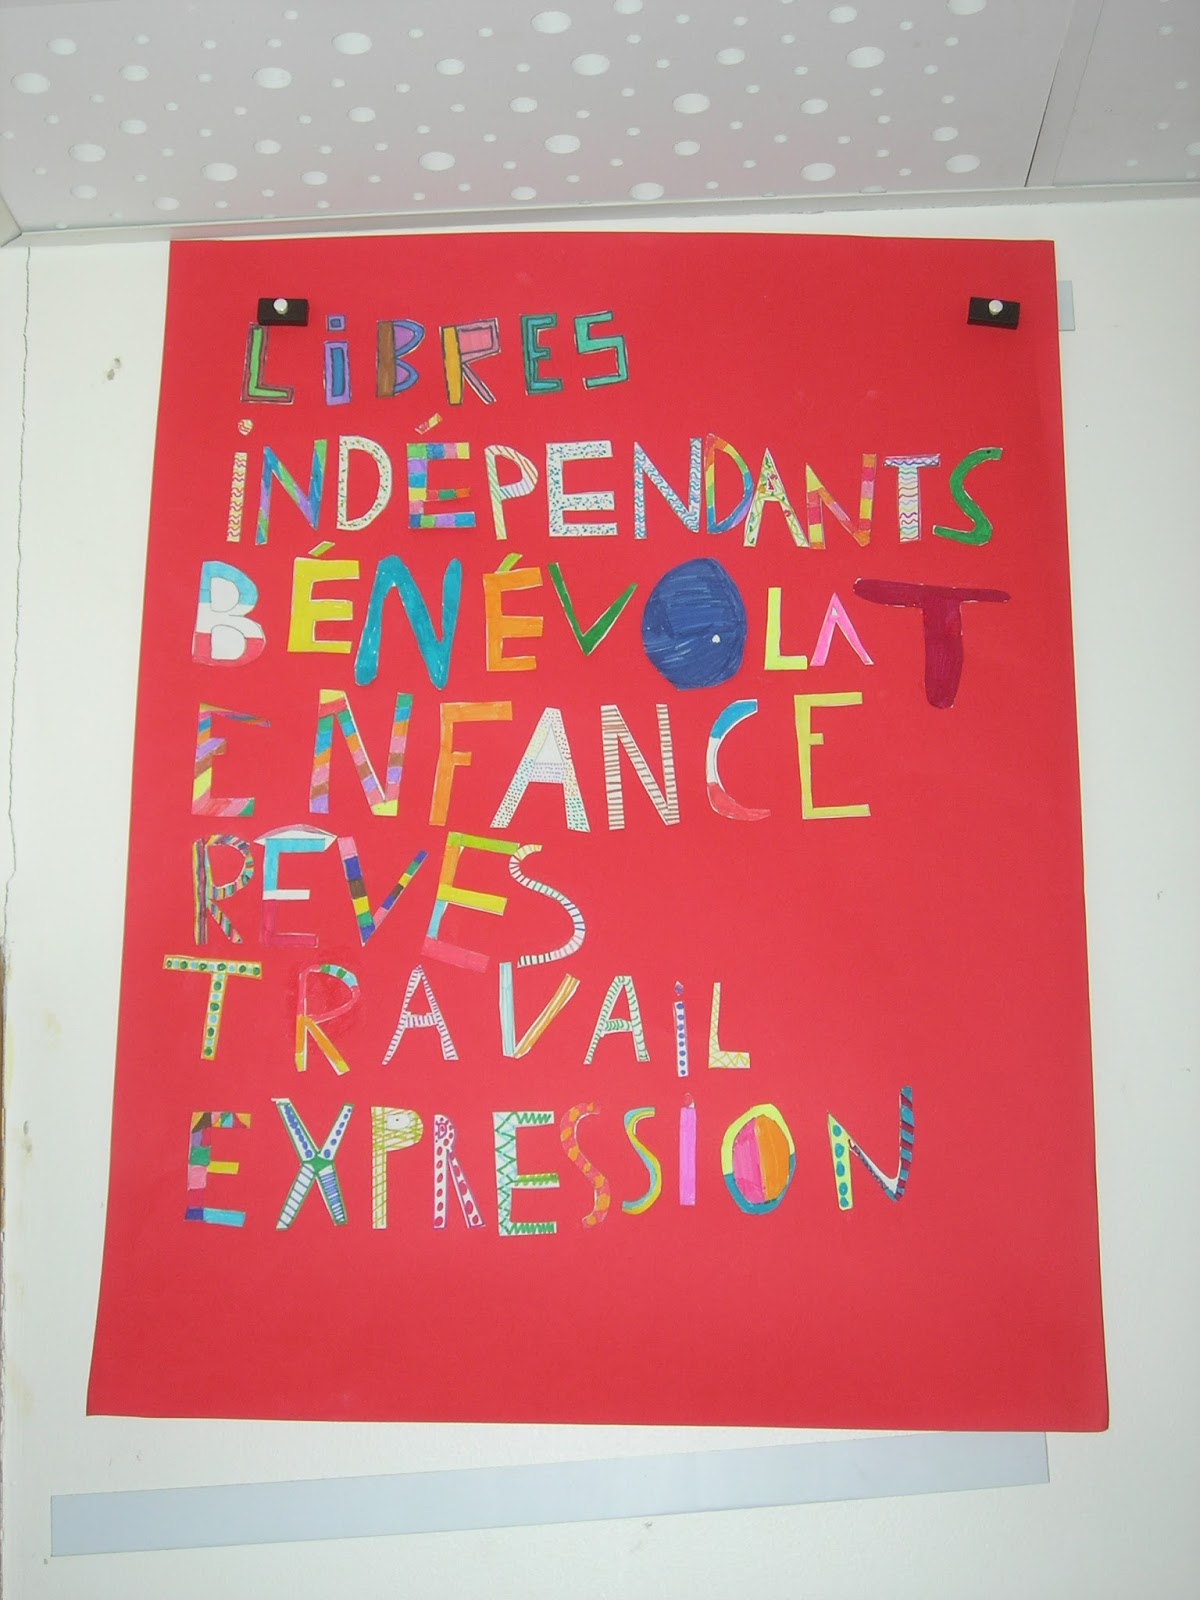 LiBRES
iNDÉPENDANTS
BÉNÉVOLAT
ENFANCE
RÊVES
TRAVAiL
EXPRESSiON